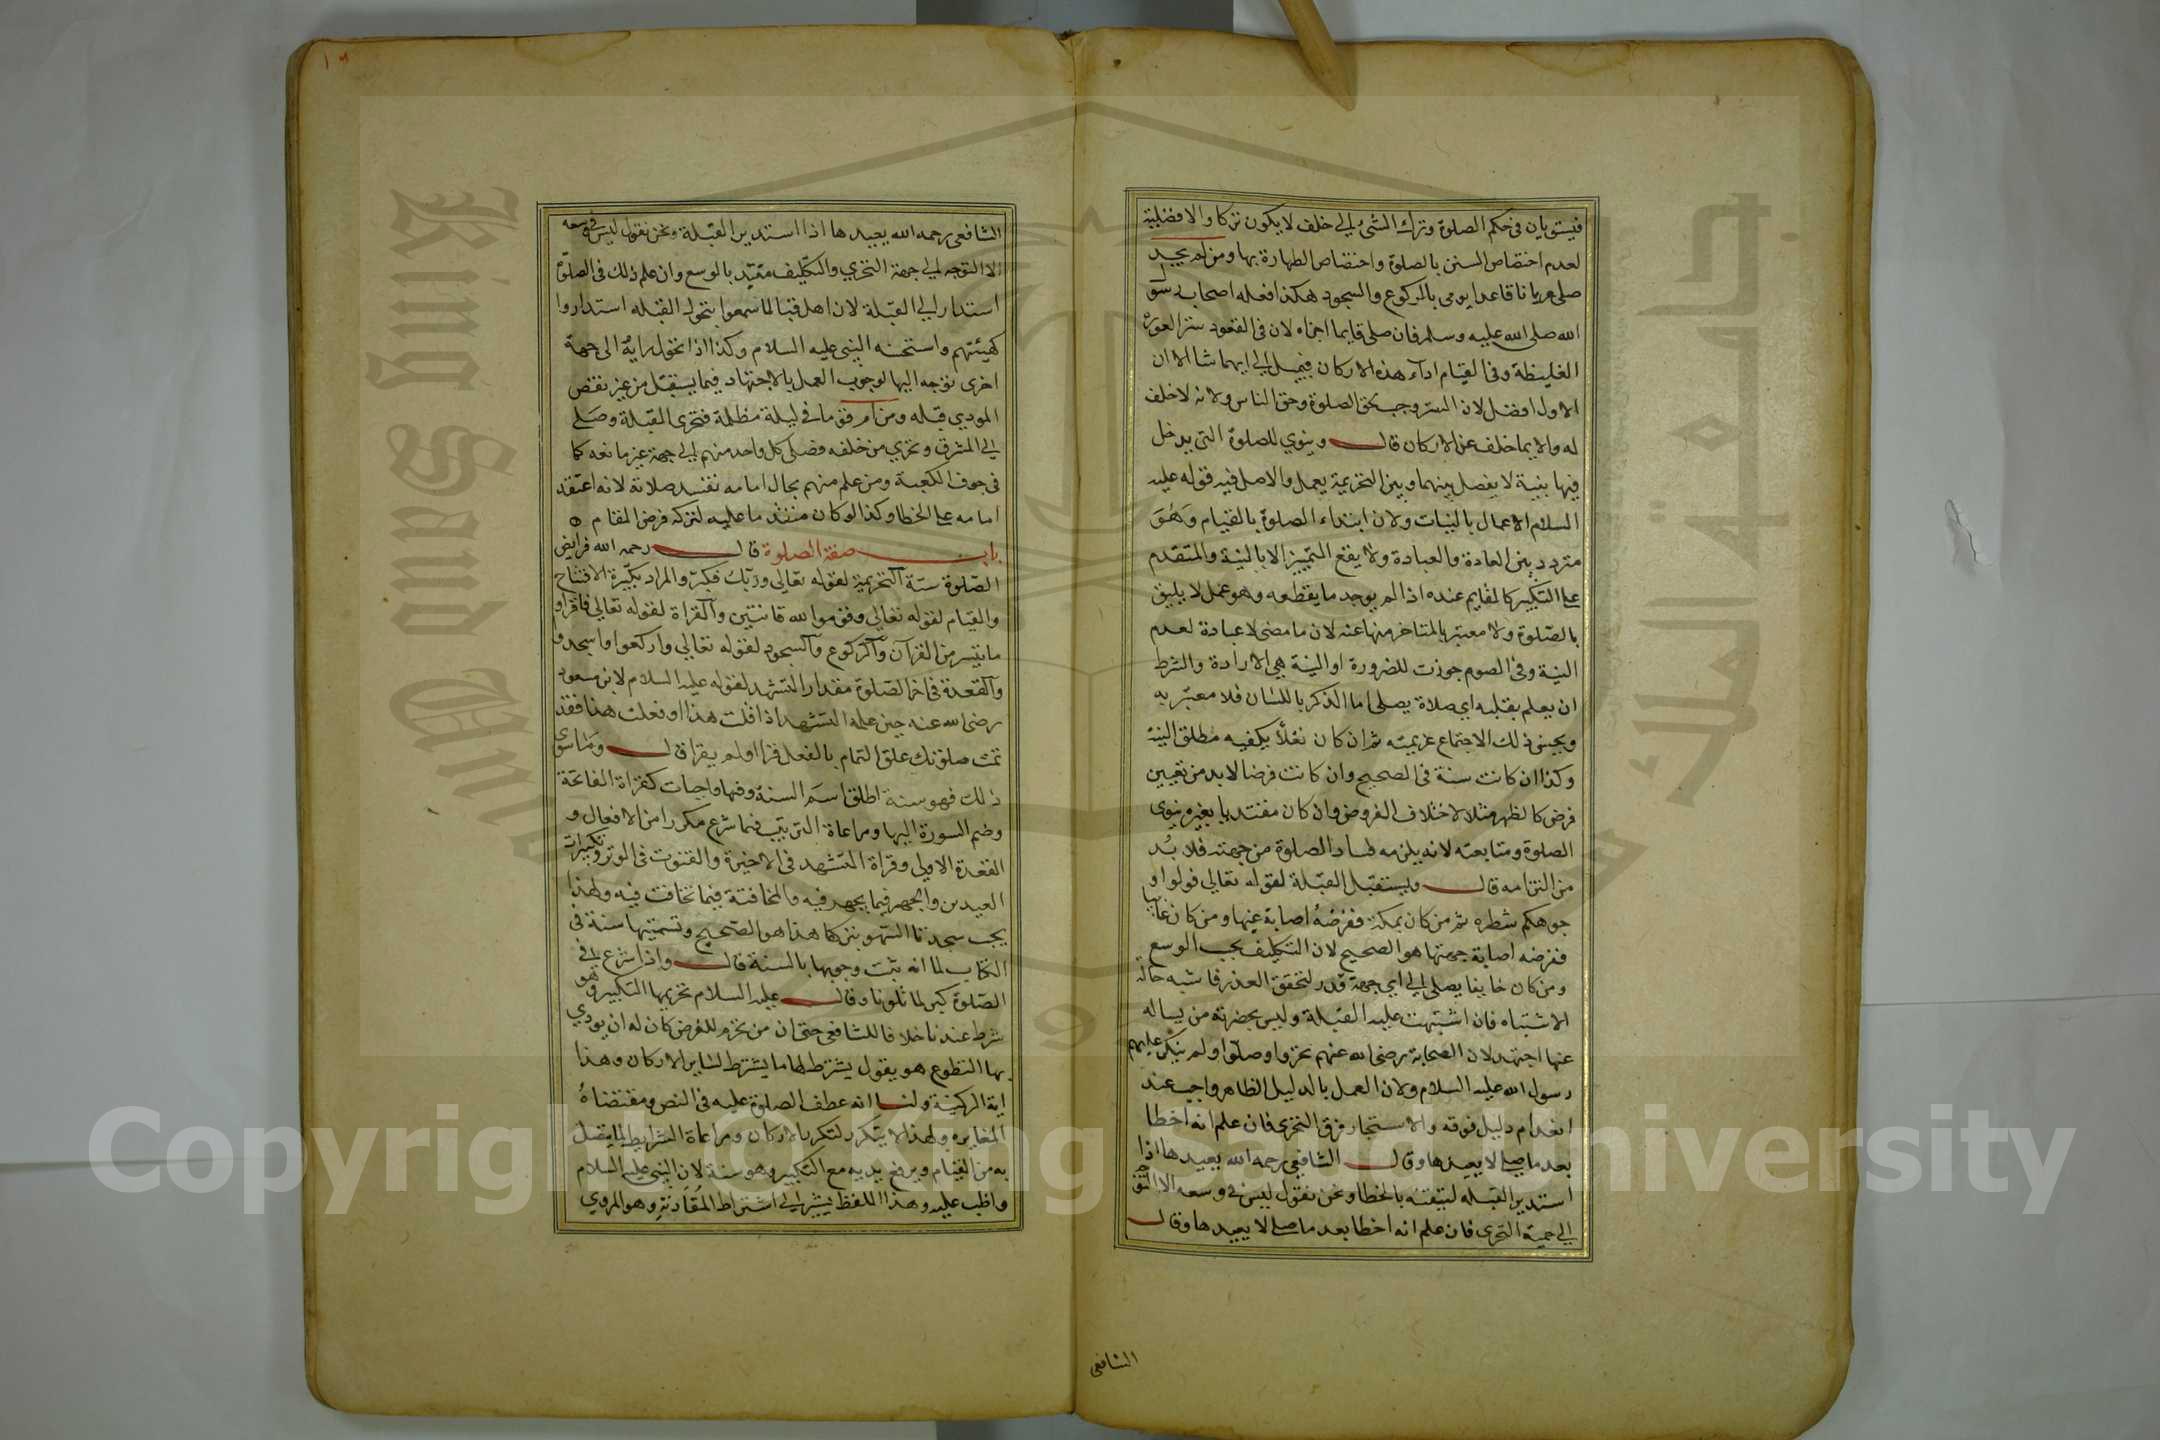 فيستويان في حكم الصلوة وترك الشئ الي خلف لا يكون تركا والافضلية
لعدم اختصاص الستر بالصلوة واختصاص الطهارة بها ومن لم يجد
صلي عريانا قاعدا يومي بالركوع والسجود هكذا فعله اصحاب رسو
الله صلى الله عليه وسلم فان صلى قايما اجزاه لان في القعود ستر العورة
الغليظة وفي القيام اداء هذه الاركان فيميل الي ايهما شا الا ان
الاول افضل لان الستر وجب بحق الصلوة وحق الناس ولانه لا خلف
له والايما خلف عن الاركان قال وينوي للصلوة التي يدخل
فيها بنية لا يفصل بينهما وبين التحريمة بعمل والاصل فيه قوله عليه
السلام الاعمال بالنيات ولان ابتداء الصلوة بالقيام وَهُوَ
متردد بين العادة والعبادة ولا يقع التمييز الا بالنية والمتقدم
علي التكبير كالقايم عنده اذا لم يوجد ما يقطعه وهو عمل لا يليق
بالصلوة ولا معتبر بالمتاخر منها عنه لان ما مضى لا عبادة لعدم
النية وفي الصوم جوزت للضرورة او النية هي الارادة والشرط
ان يعلم بقلبه اي صلاة يصلي اما الذكر باللسان فلا معتبر به
ويحسن ذلك لاجتماع عزيمته ثم ان كان نفلاً يكفيه مطلق النية
وكذا ان كانت سنة في الصحيح وان كانت فرضا لا بد من تعيين
فرض كالظهر مثلا لاختلاف الفروض وان كان مقتديا بغيره ينوي
الصلوة ومتابعته لانه يلزمه فساد الصلوة من جهته فلا بُد
من التزامه قال ويستقبل القبلة لقوله تعالي فولوا و
جوهكم شطره ثم من كان بمكة ففرضهُ اصابة عينها ومن كان غايبا
ففرضه اصابة جهتها هو الصحيح لان التكليف بحسب الوسع
ومن كان خايفا يصلي الي اي جهة قدر لتحقق العذر فاشبه حالة
الاشتباه فان اشتبهت عليه القبلة وليس بحضرته من يساله
عنها اجتهد لان الصحابة رضى الله عنهم تحروا وصلوا ولم ينكر عليهم
رسول الله عليه السلام ولان العمل بالدليل الظاهر واجب عند
انعدام دليل فوقه والاستخبار فوق التحري فان علم انه اخطا
بعد ما صلي لا يعيدها وقال الشافعي رحمه الله يعيدها اذا
استدبر القبله لتيقنه بالخطا ونحن نقول ليس في وسعه الا التوجه
الي جهة التحري فان علم انه اخطا بعد ما صلي لا يعيدها وقال
الشافعي
١٦
الشافعي رحمه الله يعيدها اذا استدبر القبلة ونحن نقول ليس في وسعه
الا التوجه الي جهة التحري والتكليف مقيد بالوسع وان علم ذلك في الصلوة
استدار الي القبلة لان اهل قبا لما سمعوا بتحول القبله استداروا
كهيئتهم واستحسنه النبي عليه السلام وكذا اذا تحول رايهُ الى جهة
اخرى توجه اليها لوجوب العمل بالاجتهاد فيما يستقبل من غير نقض
المودي قبله ومن ام قوما في ليلة مظلمة فتحرى القبلة وصلي
الي المشرق وتحري من خلفه فصلى كل واحد منهم الي جهة غير مانعه كما
في جوف الكعبة ومن علم منهم بحال امامه تفسد صلاته لانه اعتقد
امامه علي الخطا وكذا لو كان متقدما عليه لتركه فرض المقام ه
باب صفة الصلوة قال رحمه الله فرايض
الصلوة ستة التحريمة لقوله تعالي وربك فكبر والمراد بكبيرة الافتتاح
والقيام لقوله تعالي وقوموا لله قانتين والقراة لقوله تعالي فاقراو
ما تيسر من القرآن والركوع والسجود لقوله تعالي واركعوا واسجدو
والقعدة في اخر الصلوة مقدار التشهد لقوله عليه السلام لابن مسعود
رضى الله عنه حين علمه التشهد اذا قلت هذا او فعلت هذا فقد
تمت صلوتك علق التمام بالفعل قرا او لم يقرا قال وما سوي
ذلك فهو سنة اطلق اسم السنة وفيها واجبات كقراة الفاتحة
وضم السورة اليها ومراعاة الترتيب فيما شرع مكررا من الافعال و
القعدة الاولي وقراة التشهد في الاخيرة والقنوت في الوتر وتكبيرات
العيدين والجهر فيما يجهر فيه والمخافتة فيما تخافت فيه ولهذا
يجب سجدتا السهو بتركها هذا هو الصحيح وتسميتها سنة في
الكتاب لما انه ثبت وجوبها بالسنة قال واذا شرع في
الصلوة كبر لما تلونا وقال عليه السلام تحريمها التكبير وهو
شرط عندنا خلافا للشافعي حتى ان من تحرم للفرض كان له ان يودي
بها التطوع هو يقول يشترط لها ما يشترط لساير الاركان وهذا
اية الركنية ولنا انه عطف الصلوة عليه في النص ومقتضاهُ
المغايره ولهذا لا يتكرر لتكرر الاركان ومراعاة الشرايط لما يتصل
به من القيام ويرفع يديه مع التكبير وهو سنة لان النبي عليه السلام
واظب عليه وهذا اللفظ يشير الي اشتراط المقارنة وهو المروي
Copyright © King Saud University